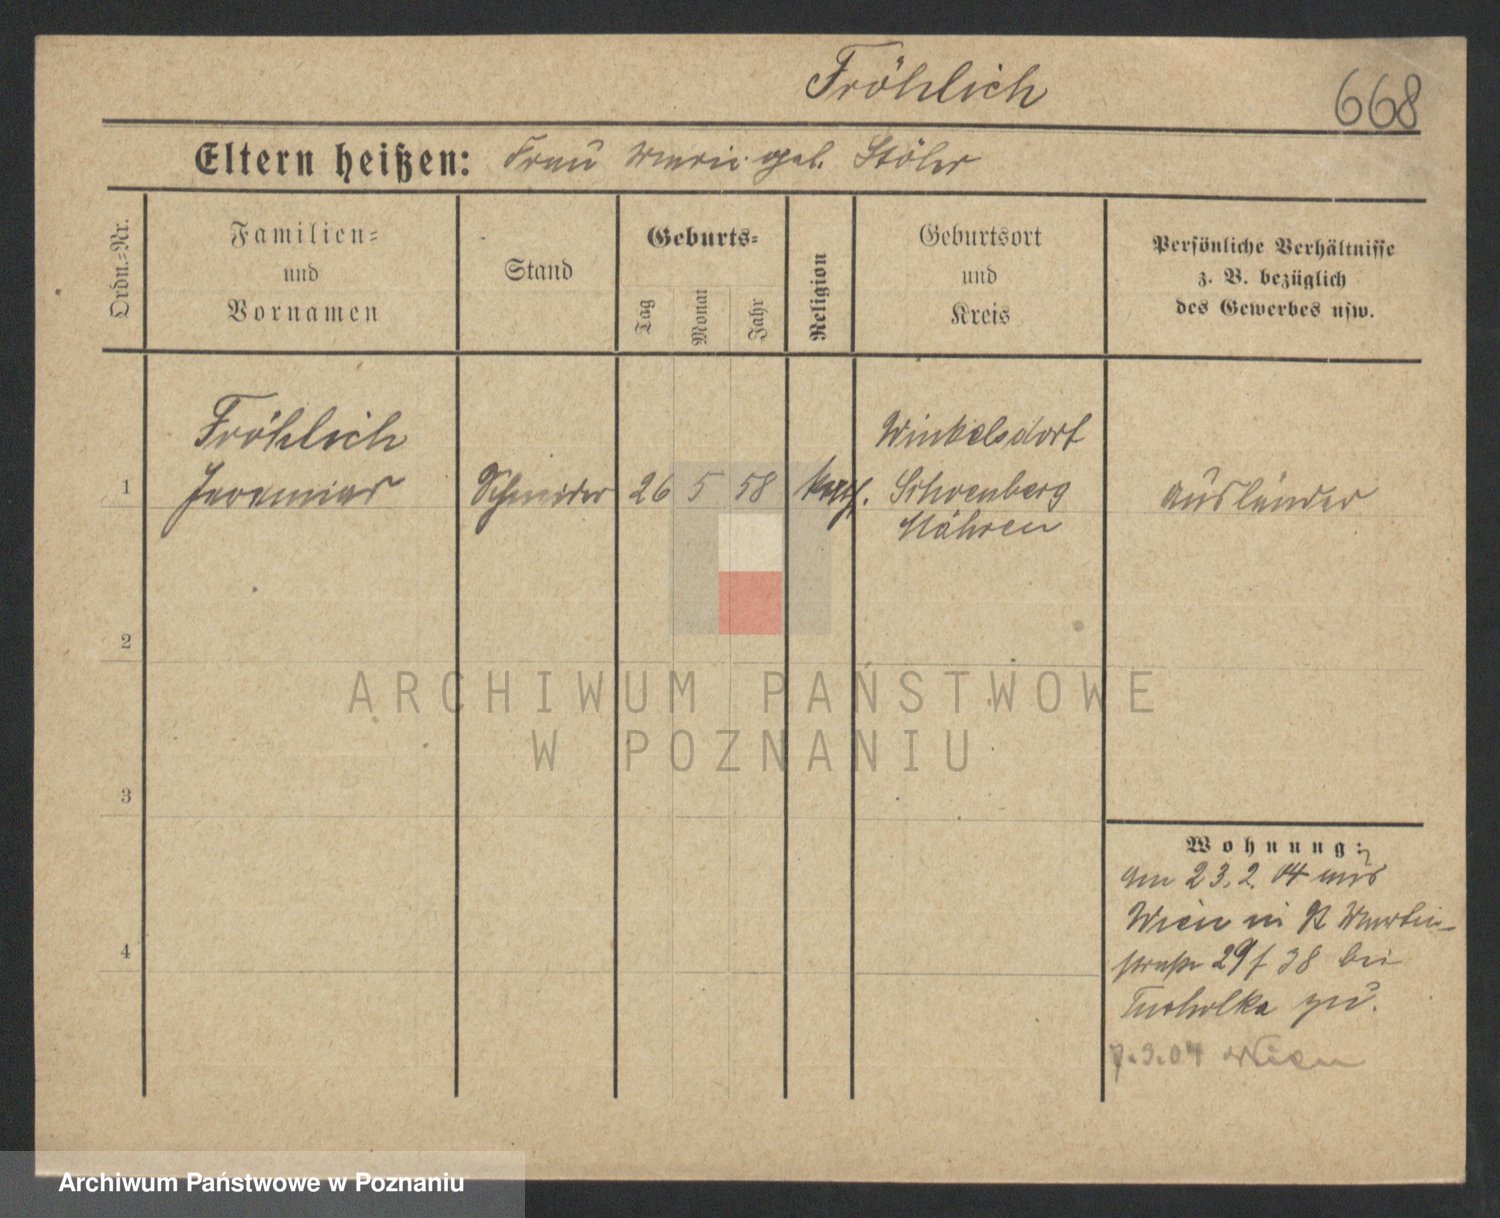 Fröhlich
668
Eltern heißen: Frau Marie geb. Stöhr
Ordn.=Nr.
Familien=
und
Vornamen
Stand
Geburts=
Tag
Monat
Jahr
Religion
Geburtsort
und
Kreis
Persönliche Verhältnisse
z. B. bezüglich
des Gewerbes usw.
Fröhlich
Winkelsdorf
1 Jeremias Schneider 26 5 58 kath. Schoenberg Ausländer
Mähren
2
3
4
Wohnung:
am 23.2.04 aus
Wien in St Martin-
straße 29/38 bei
Tucholka zu.
7.3.04 Wien
ARCHIWUM PAŃSTWOWE
W POZNANIU
Archiwum Państwowe w Poznaniu